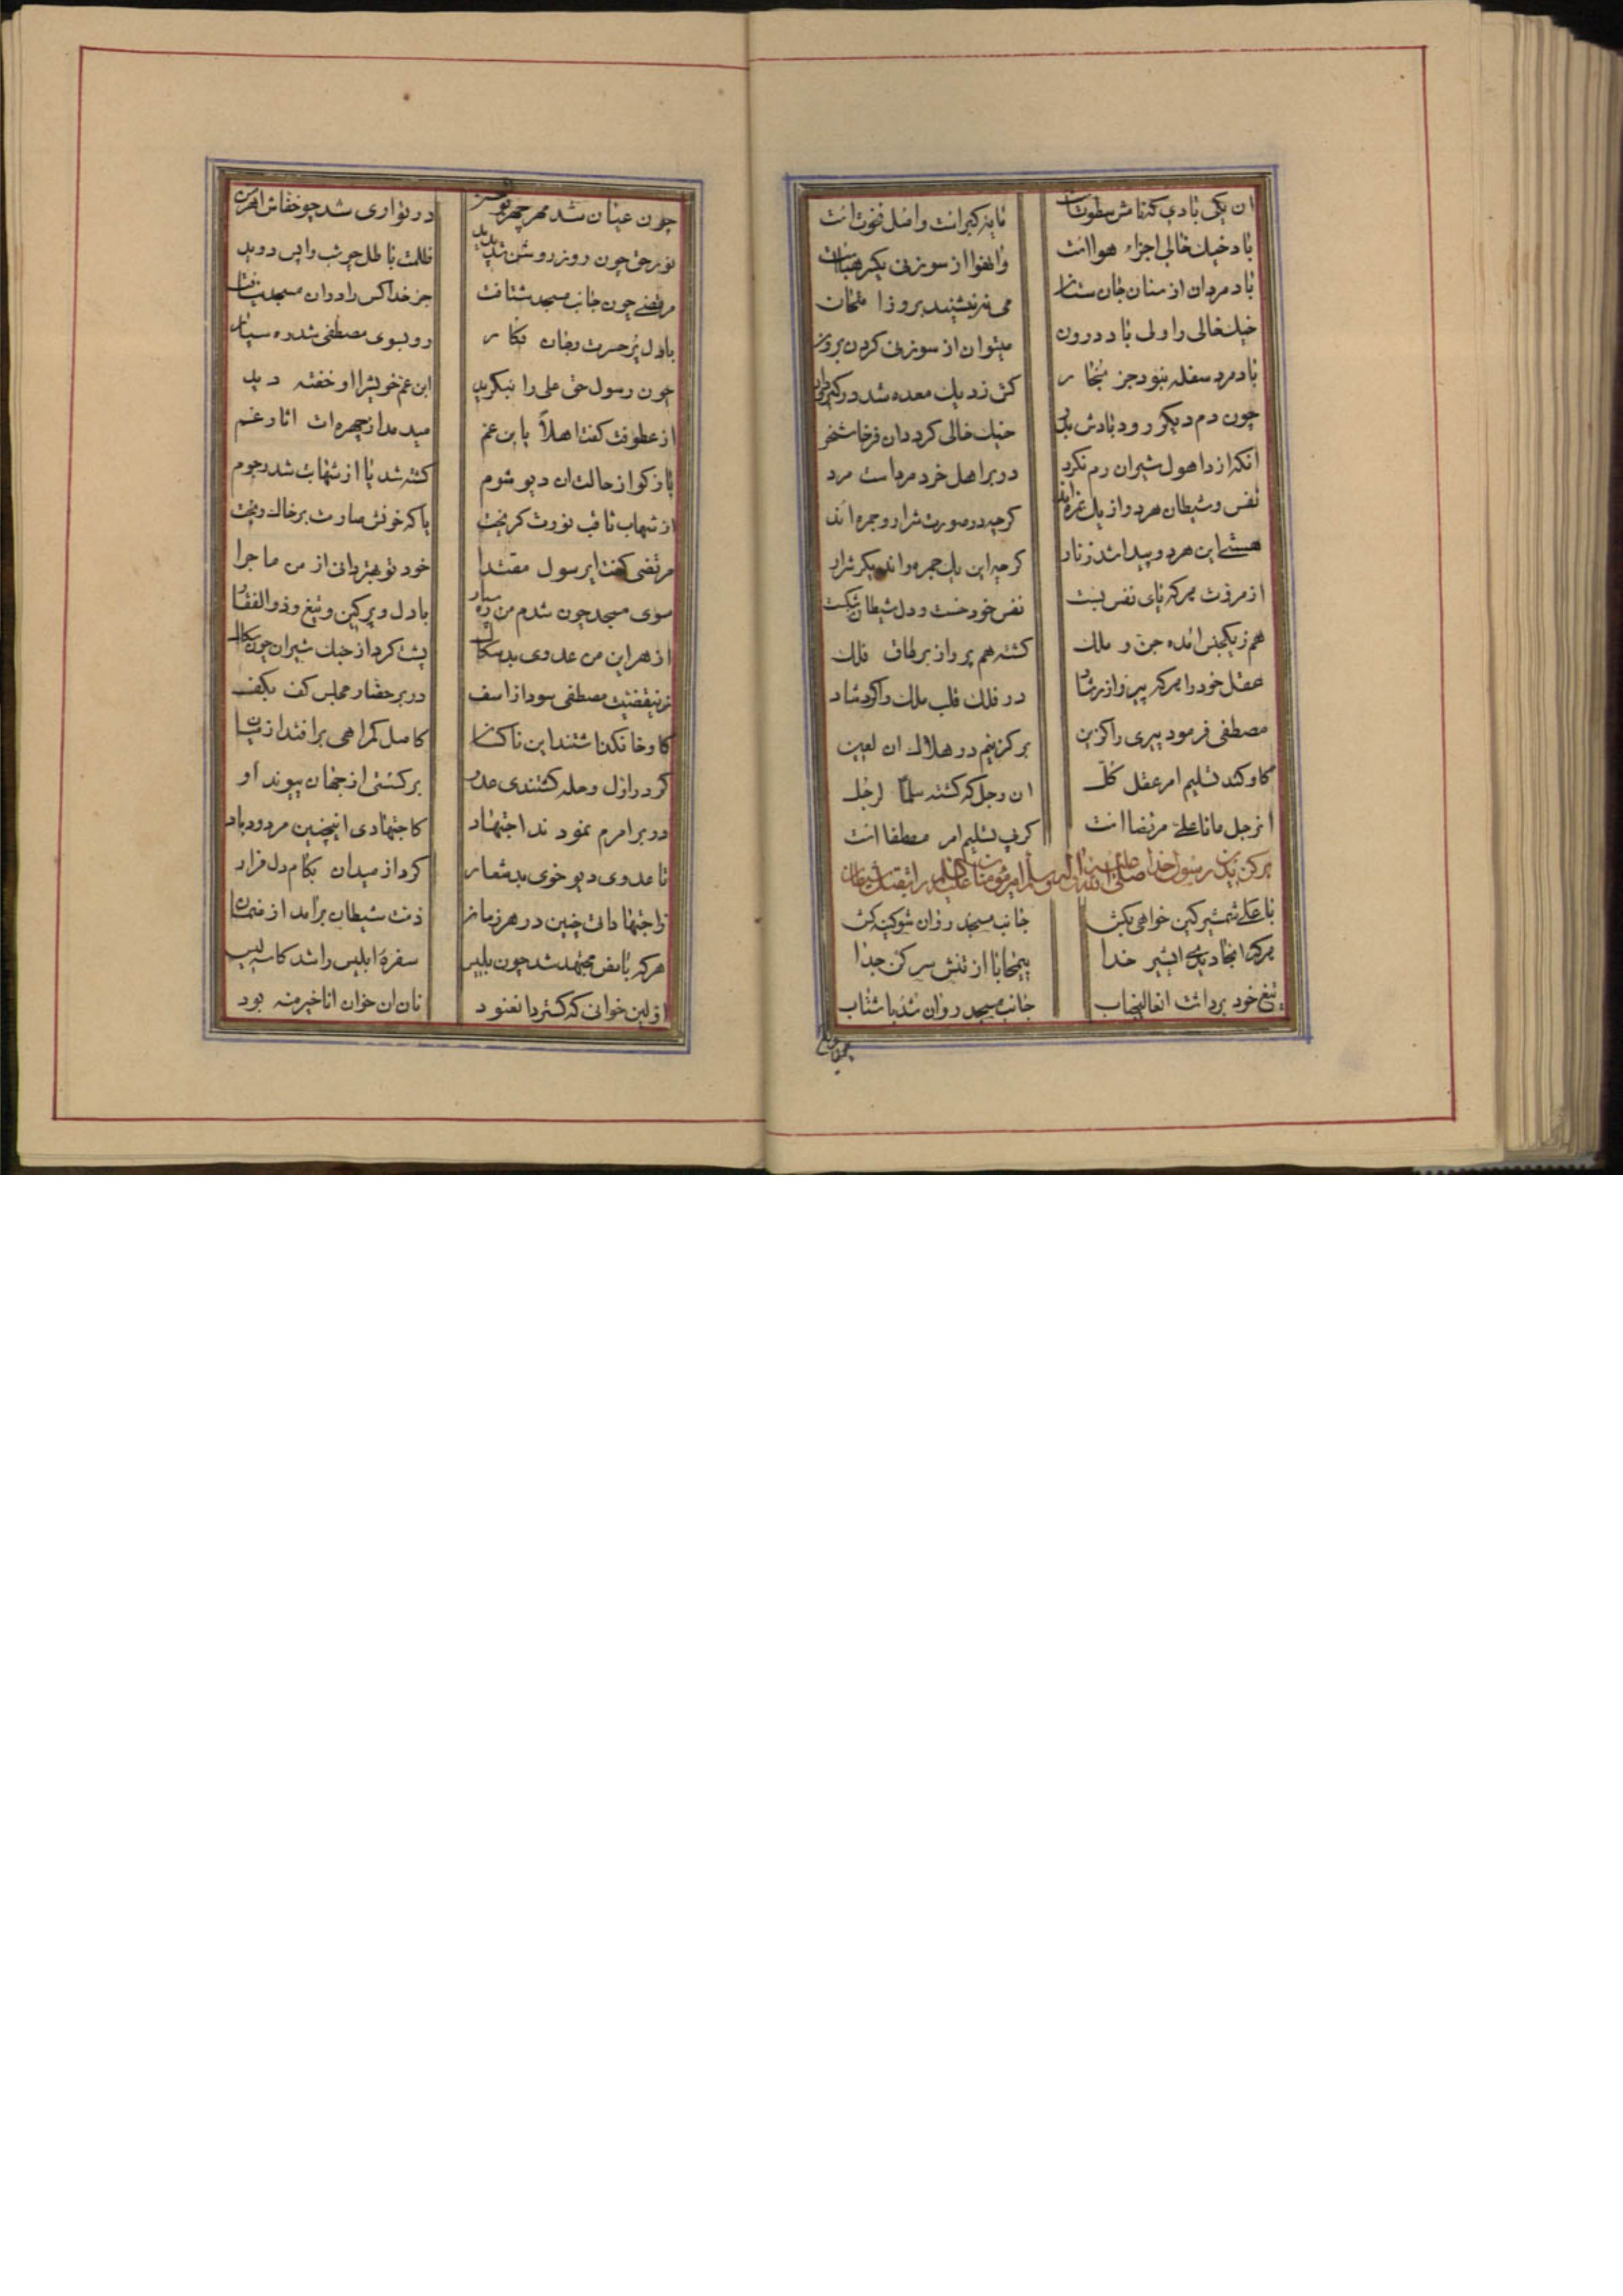 ان یکی بادی کتفاش سطوت است مایه کبر است و اصل نخوت است
باد خیک خالی اجزاء هوا است وانهوا از سوزنی یکسر هباست
باد مردان از سنان جان ستان می نه بنشیند بروز امتحان
خیک خالی را ولی باد درون میتوان از سوزنی کردن برون
باد مرد سفله نبود جز بخار کش ز دیک معده شد در
چون دم دیکر رود بادش خیک خالی کردد ان پرخاشخر
آنکه از داهول شیران رم نکرد در بر اهل خرد مرد است مرد
نفس و شیطان هر دو از یک کرچه در صورت شرار و جمره اند
هستی این هر دو پیدا شد ز نار کرچه این یک جمره و اندیکر شرار
از مروت هر که پای نفس بست نفس خود خست و دل شیطان شکست
هم ز یکجنس امده جن و ملک کشته هم پرواز بر طاق فلک
عقل خود را هر که پیر در فلک قلب ملک را کرد شاد
مصطفی فرمود پیری را کزین برکزینم در هلاک ان لعین
کاو کند تسلیم امر عقل کل ان رجل که کشته سلما لرجل
انرجل مانا علی مرتضا است کش تسلیم امر مصطفا است
رسول خدا صلی الله علیه و اله و سلم امیر مومنان علی علیه السلام را بقتل شیطان
با علی شمشیر کین خواهی بکش جانب مسجد روان شو کینه کش
هر که انجا دیدی ایشیر خدا بیمحابا از تنش سر کن جدا
تیغ خود برداشت انعالیجناب جانب مسجد روان شد با شتاب
چون عیان شد مهر چهر در تواری شد چو خفاش اهرمن
نور حق چون روز روشن شد پدید ظلمت باطل چو شب واپس دوید
مرتضی چون جانب مسجد شتافت جز خدا کس را در ان مسجد نیافت
با دل پر حسرت و جان فکار رو بسوی مصطفی شد ره سپار
چون رسول حق علی را بنکرید ابن عم خویش را اشفته دید
از عطوفت کفت اهلاً یابن عم میدمد از چهره ات اثار غم
باز کو از حالت ان دیو شوم کشته شد یا از شهابت شد رجوم
از شهاب ثاقب نورت کریخت یا که خونش صارمت بر خاک ریخت
مرتضی کفت ایرسول مقتدا خود تو بهتر دانی از من ماجرا
سوی مسجد چون شدم من ره سپار با دل پر کین و تیغ ذوالفقار
از هراس من عدوی بدسکال پشت کرد از جنک شیران چون شکال
زینقضیت مصطفی سود از اسف در بر حضار مجلس کف بکف
کاوخا نکذاشتند این ناکسان کاصل کمراهی برافتد از میان
کر در ازل حمله کشتندی عدو برکسستی از جهان پیوند او
در بر امرم نمودند اجتهاد کاجتهادی اینچنین مردود باد
تا عدوی دیو خوی بدشعار کرد از میدان بکام دل فرار
زاجتهادات چنین در هر زمان ذنب شیطان برامد از
هر که با نص مجتهد شد چون بلیس سفرهٔ ابلیس را شد کاسه لیس
اولین خوانی که کسترد انعنود نان ان خوان انا خیر منه بود